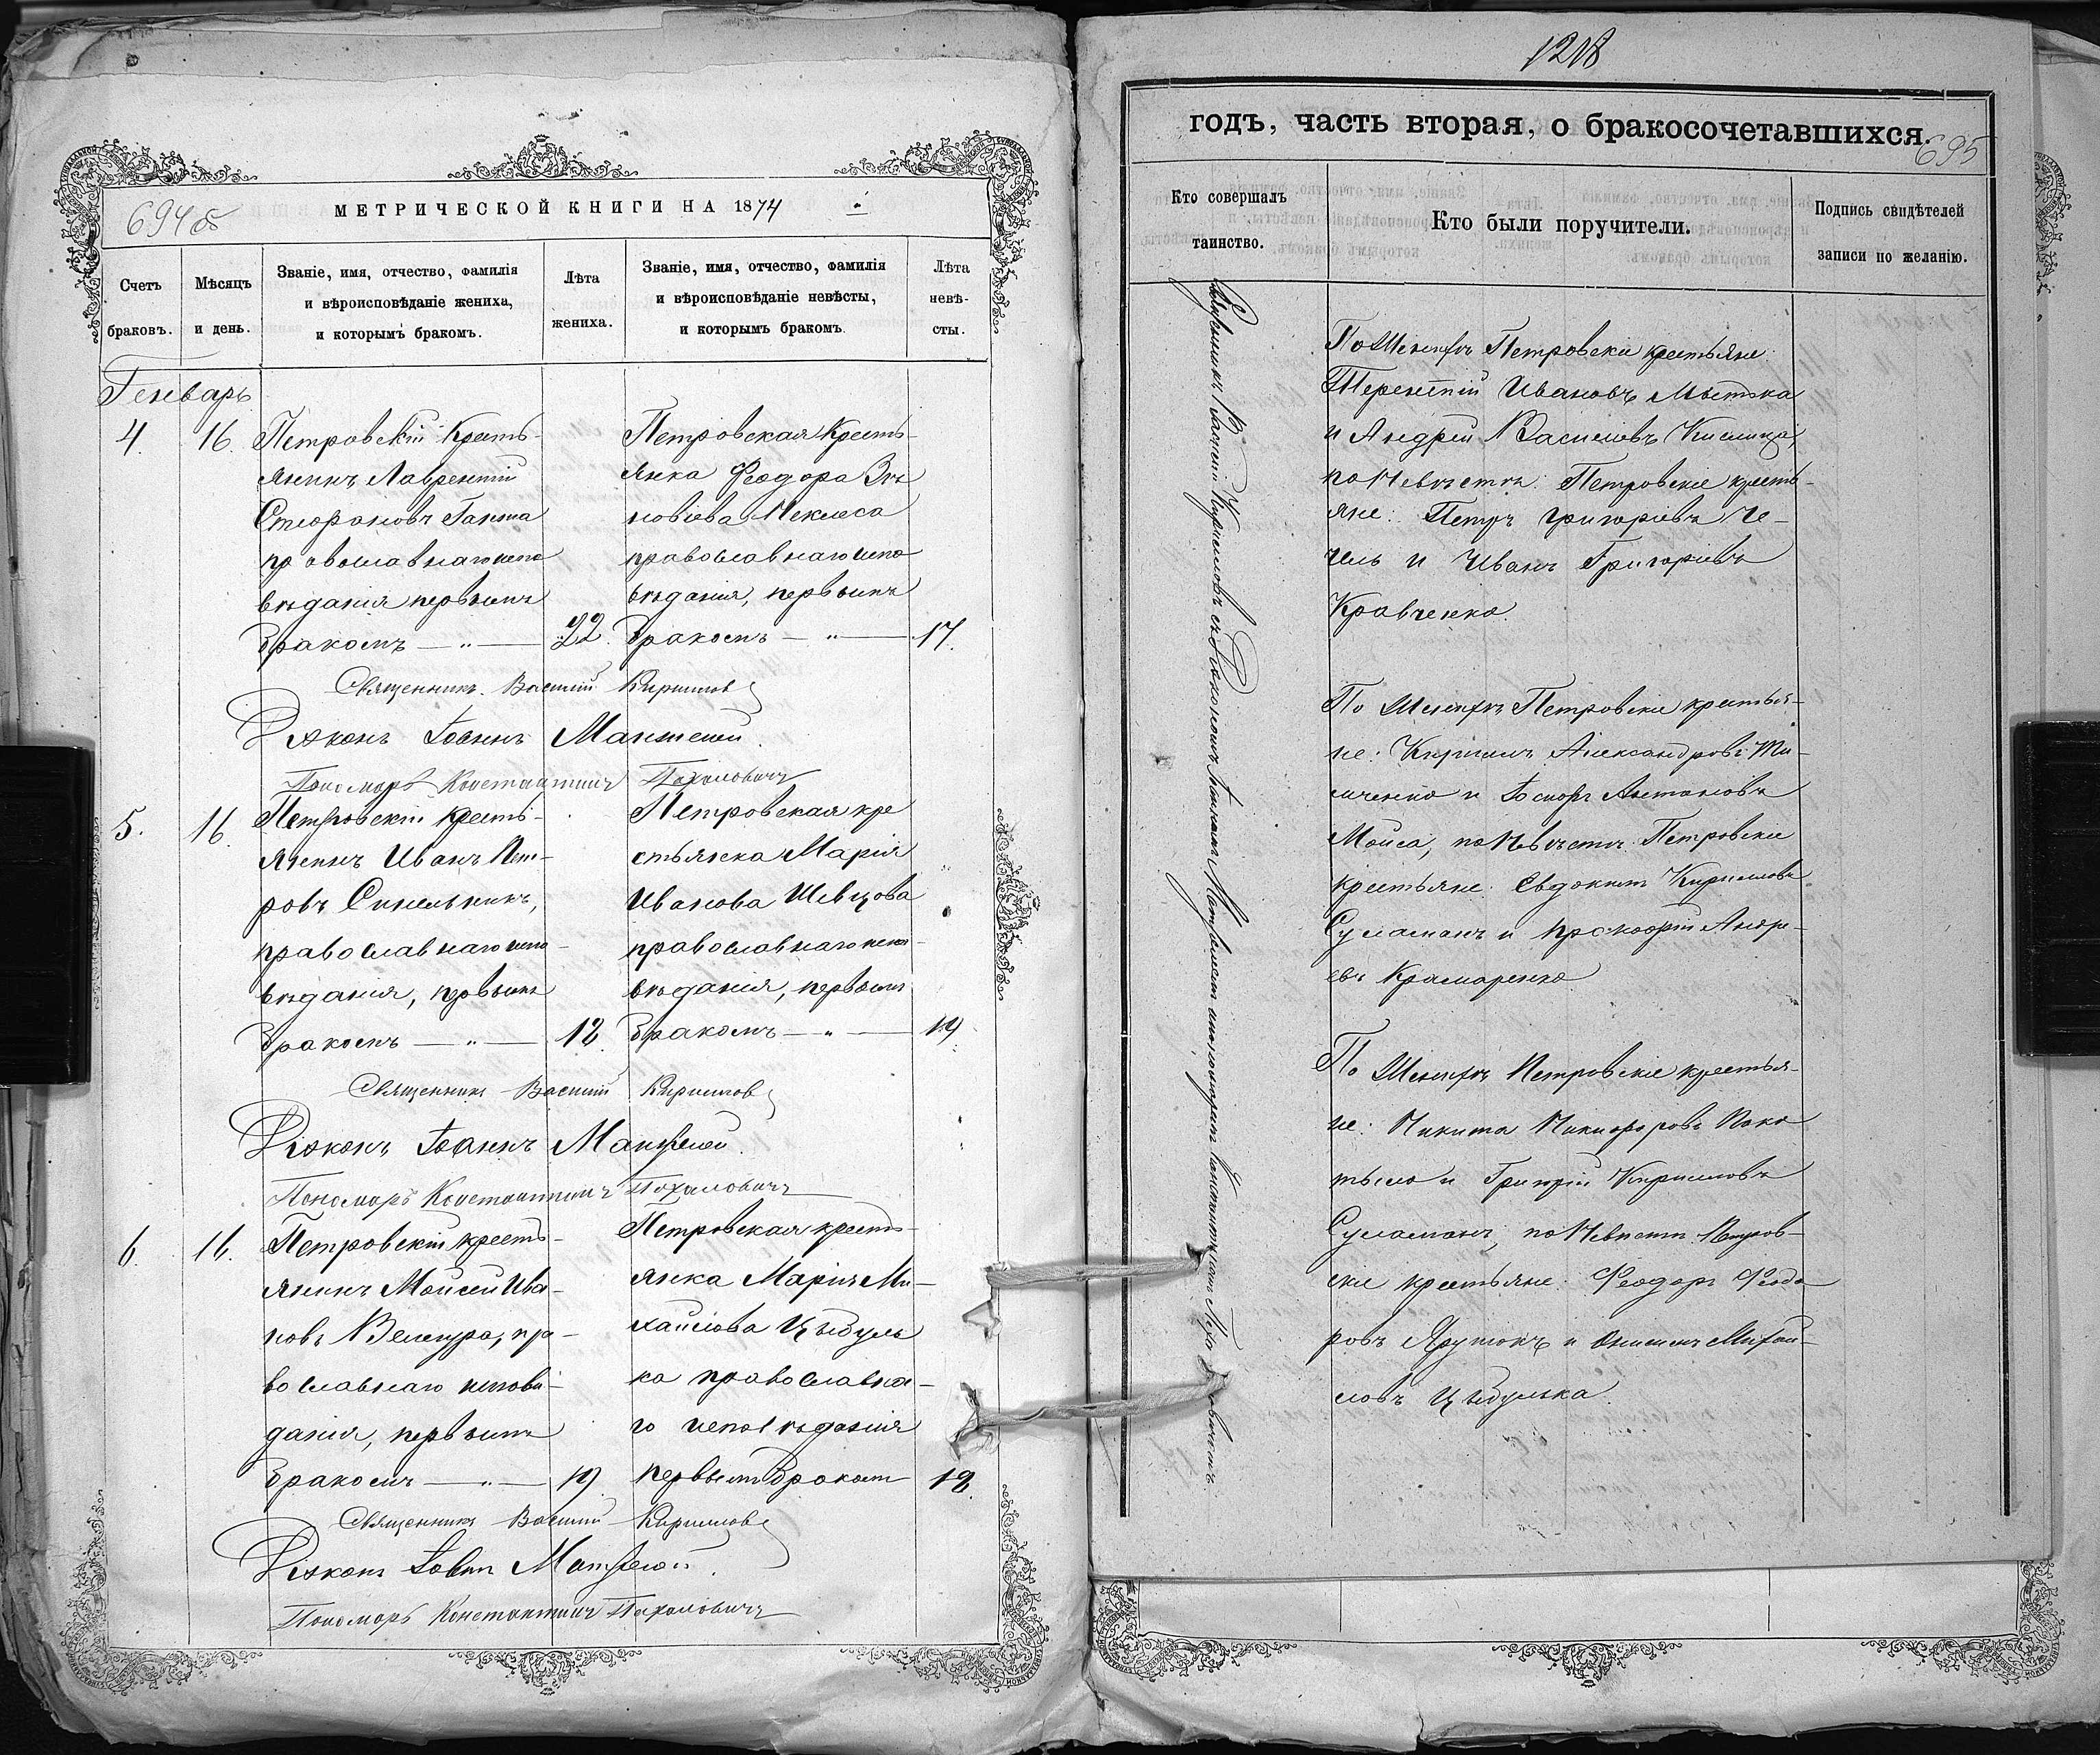 694об
МЕТРИЧЕСКОЙ КНИГИ НА 1874
Счетъ браковъ.
Мѣсяцъ и день.
Званіе, имя, отчество, фамилія
и вѣроисповѣданіе жениха,
и которымъ бракомъ.
Лѣта жениха.
Званіе, имя, отчество, фамилія
и вѣроисповѣданіе невѣсты,
и которымъ бракомъ.
Лѣта невѣ-
сты.
Генварь
4. 16.
Петровскій кресть-
янинъ Лаврентій
Стефановъ Гапта
православнаго испо
вѣданія первымъ
бракомъ — „ — 22.
Петровская кресть-
янка Феодора Зи
новіева
православнаго испо
вѣданія, первымъ
бракомъ — „ — 17.
Священникъ Василій Кирилловъ
Діаконъ Іоаннъ
Пономарь Константинъ Пахаловичъ
5. 16.
Петровскій кресть-
янинъ Иванъ Пет-
ровъ Синельникъ,
православнаго испо-
вѣданія, первымъ
бракомъ — „ — 18.
Петровская кре
стьянка Марія
Иванова Шевцова
православнаго испо-
вѣданія, первымъ
бракомъ — „ — 19.
Священникъ Василій Кирилловъ
Діаконъ Іоаннъ
Пономарь Константинъ Пахаловичъ
6. 16.
Петровскій кресть-
янинъ Моисей Ива-
новъ Венгура, пра-
вославнаго исповѣ-
данія, первымъ
бракомъ — „ — 19.
Петровская кресть-
янка Марія Ми-
хайлова Цыбуль
ка православна-
го исповѣданія
первымъ бракомъ 18.
Священникъ Василій Кирилловъ
Діаконъ Іоаннъ
Пономарь Константинъ Пахаловичъ
1218
годъ, часть вторая, о бракосочетавшихся.
695
Кто совершалъ
таинство.
Кто были поручители.
Подпись свидѣтелей
записи по желанію.
Священникъ Василій Кирилловъ съ Діакономъ Іоанномъ
По Женихѣ Петровскіе крестьяне:
Терентій Ивановъ Мытька
и Андрей Васильевъ Кислица,
по Невѣстѣ: Петровскіе кресть-
яне: Петръ Григорьевъ Че-
чель и Иванъ Григорьевъ
Кравченко.
По Женихѣ Петровскіе крестья-
не: Кириллъ Александровъ Ти-
мченко и Іосифъ Антоновъ
Мойса, по Невѣстѣ Петровскіе
крестьяне: Евдокимъ Кирилловъ
Суламанъ и Прокофій Андре-
евъ Крамаренко
По Женихѣ Петровскіе крестья-
не: Никита Никифоровъ Пока
тыло и Григорій Кирилловъ
Суламанъ, по Невѣстѣ Петров-
скіе крестьяне: Феодоръ Феодо
ровъ Ярутокъ и Онисимъ Михай-
ловъ Цыбулька.